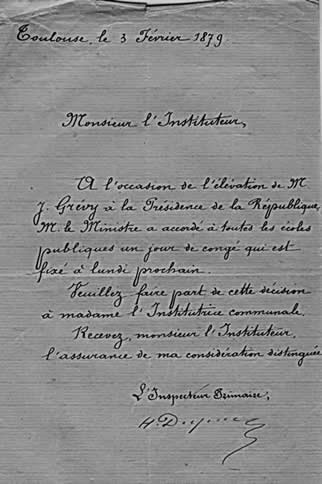 Toulouse, le 3 Février 1879.
Monsieur l'Instituteur,
A l'occasion de l'élévation de M.
J. Grévy à la Présidence de la République,
M. le Ministre a accordé à toutes les écoles
publiques un jour de congé qui est
fixé à lundi prochain.
Veuillez faire part de cette décision
à madame l'Institutrice communale.
Recevez, monsieur l'Instituteur,
l'assurance de ma considération distinguée.
L'Inspecteur Primaire,